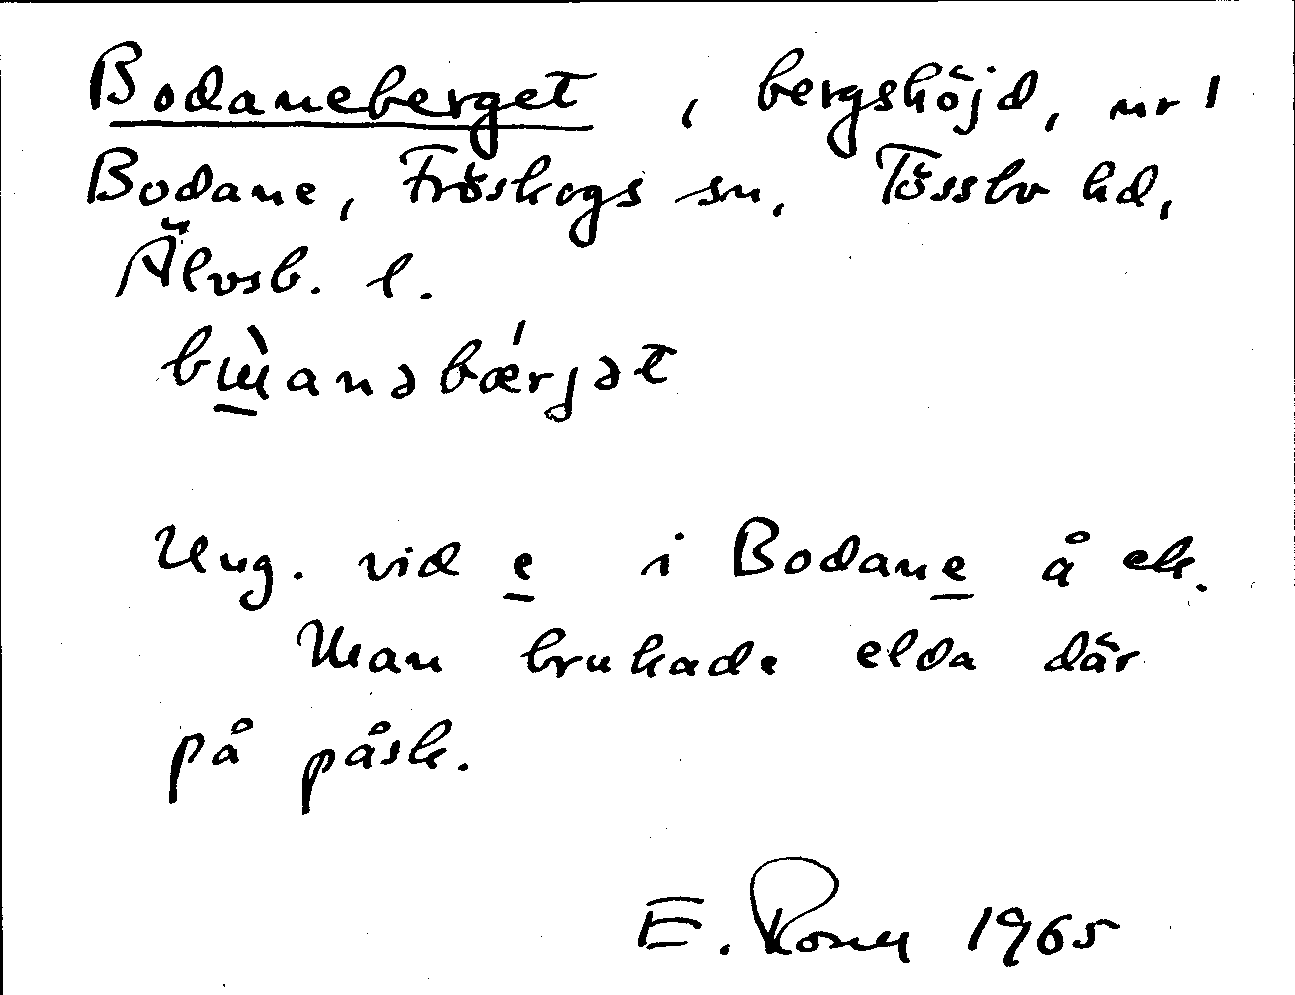 Bodaneberget, bergshöjd, nr 1
Bodane, Fröskogs sn, Tössbo hd,
Älvsb. l.
bɯ̀anəbǽrjət
Ung. vid e i Bodane å ek.
Man brukade elda där
på påsk.
E. 1965